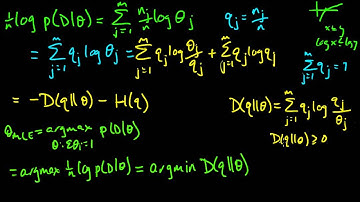 1/n log p(D|θ) = Σ_{j=1}^{m} n_j/n log θ_j    q_j = n_j/n
= Σ_{j=1}^{m} q_j log θ_j = Σ_{j=1}^{m} q_j log θ_j/q_j + Σ_{j=1}^{m} q_j log q_j
Σ_{j=1}^{m} q_j = 1
= -D(q||θ) - H(q)    D(q||θ) = Σ_{j=1}^{m} q_j log q_j/θ_j
θ_MLE = argmax_{θ: Σθ_i=1} p(D|θ)    D(q||θ) ≥ 0
= argmax 1/n log p(D|θ) = argmin D(q||θ)